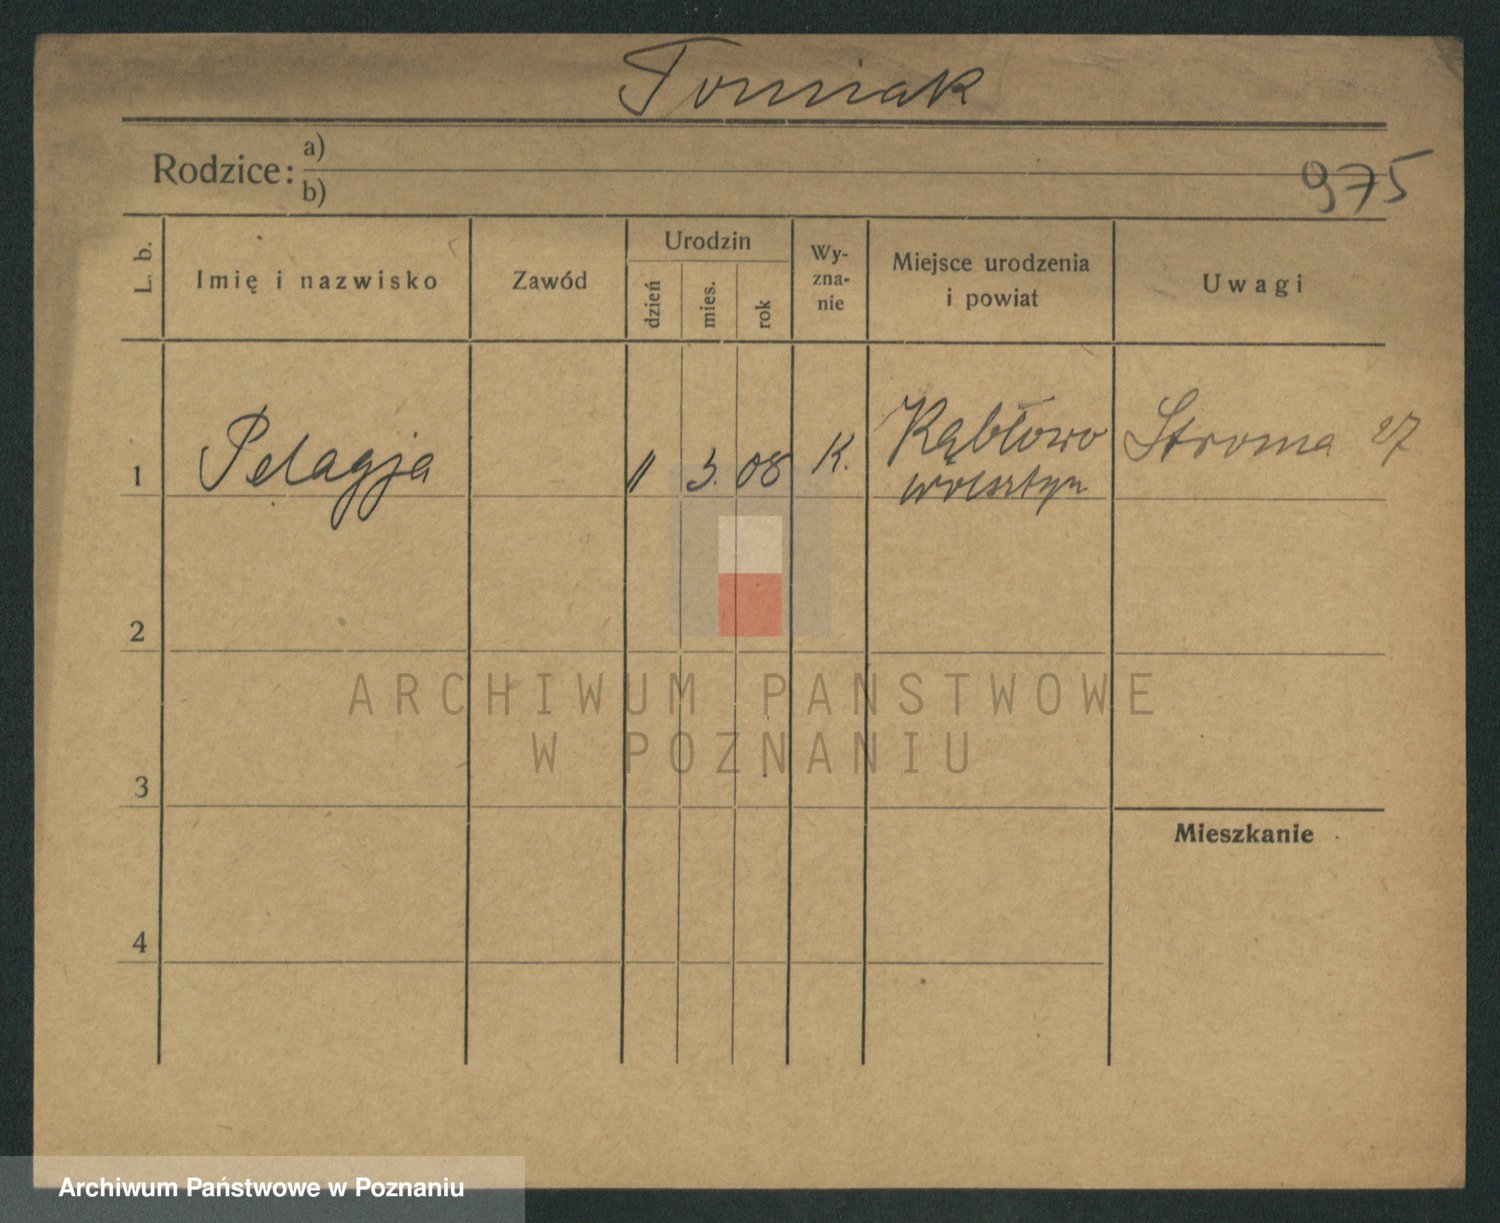 Tomiak
Rodzice: a)
b)
975
L. b.
Imię i nazwisko
Zawód
Urodzin
dzień
mies.
rok
Wy-
zna-
nie
Miejsce urodzenia
i powiat
Uwagi
1 Pelagja 11 3. 08 K. Kąbłowo Stroma 27
wolsztyn
2
3
4
Mieszkanie
ARCHIWUM PAŃSTWOWE
W POZNANIU
Archiwum Państwowe w Poznaniu